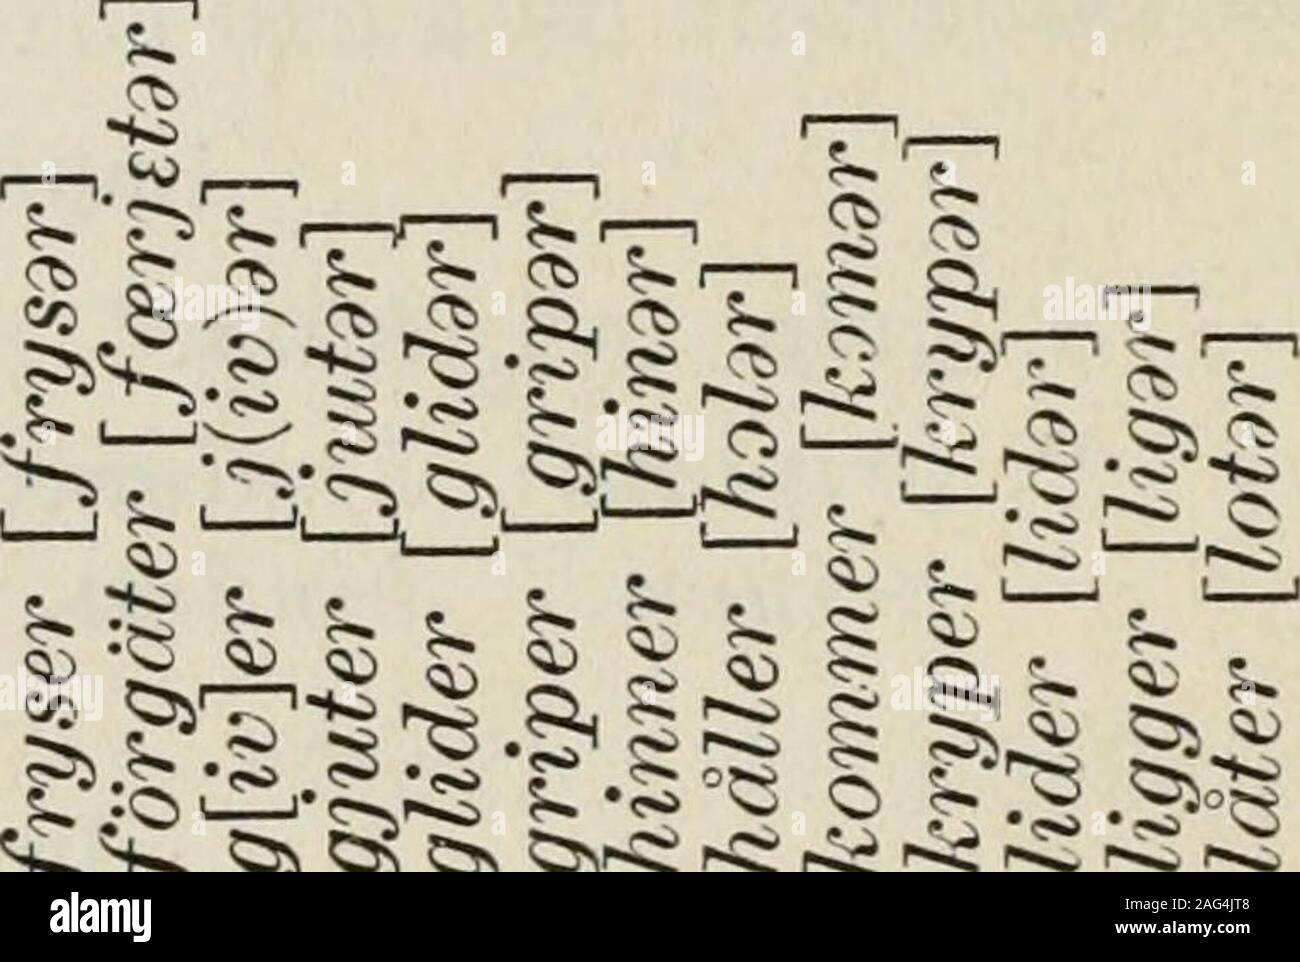 fryser [fryser]
förgäter [færjɛter]
g[iv]er [ji(v)er]
gjuter [juter]
glider [glider]
griper [griper]
hinner [hiner]
håller [hɔler]
kommer [kɔmer]
kryper [kryper]
lider [lider]
ligger [liger]
låter [loter]
alamy
Image ID: 2AG4JT8
www.alamy.com